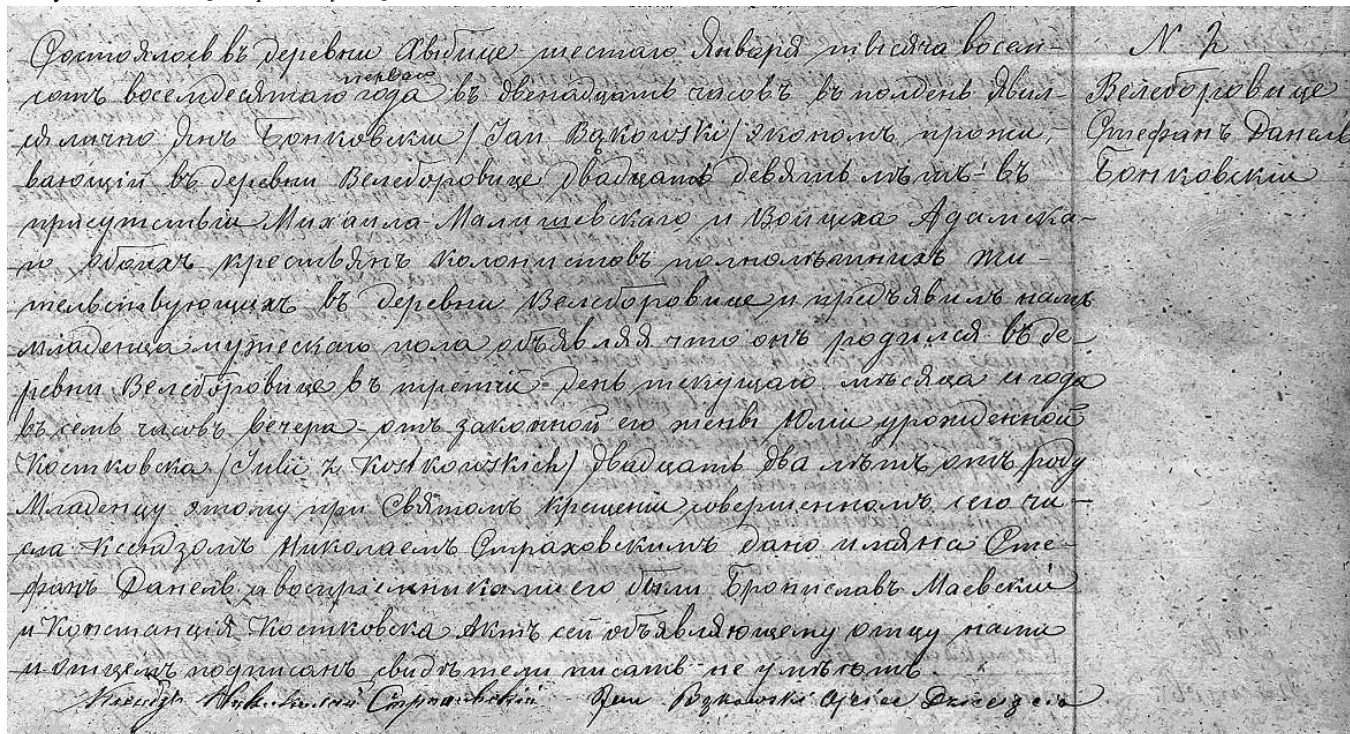 Состоялось въ деревни Хвбице шестаго Января тысяча восем-
сотъ восемдесятаго первого года въ двенадцать часовъ въ полдень Явил-
ся лично Янъ Бонковски / Jan Bąkowski / экономъ прожи-
вающій въ деревни Велеборовице двадцать девять лѣтъ въ
присутствіи Михаила Малишевскаго и Войцеха Адамска-
го обоихъ крестьянъ колонистовъ полнолѣтнихъ жи-
тельствующихъ въ деревни Велеборовице и предъявилъ намъ
младенца мужескаго пола объявляя что онъ родился въ де-
ревни Велеборовице въ третій день текущаго мѣсяца и года
въ семь часовъ вечера отъ законной его жены Юліи урожденной
Костковска / Julii z Kostkowskich / двадцать два лѣтъ отъ роду
Младенцу этому при Святомъ Крещеніи совершенномъ сего чи-
сла Ксендзомъ Николаемъ Страховскимъ дано имяна Сте-
фанъ Данель а воспріемниками его были Брониславъ Маевскій
и Констанція Костковска Актъ сей объявляющему отцу нами
и отцемъ подписанъ свидѣтели писать не умѣютъ.
Ксендзъ Николай Страховскій Jan Bąkowski Ojciec Dziecięcia
N 2
Велеборовице
Стефанъ Данель
Бонковскій